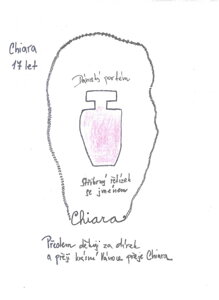 Chiara
17 let
Dámský parfém
Stříbrný řetízek
se jménem
Chiara
Předem děkuji za dárek
a přeji krásné Vánoce přeje Chiara.